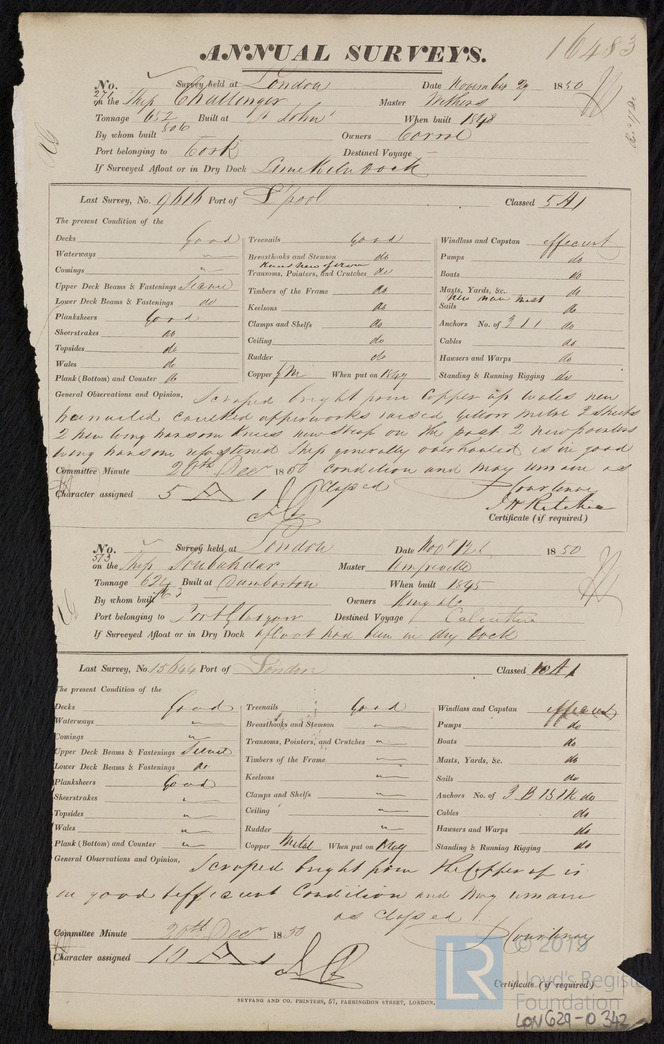 16483
ANNUAL SURVEYS.
No. 271 Survey held at London Date November 29 1850
on the Ship Challenger Master Withers
Tonnage 652 506 Built at St John When built 1848
By whom built Owners
Port belonging to Cork Destined Voyage
If Surveyed Afloat or in Dry Dock Limekiln Dock
Last Survey, No. 9616 Port of L'pool Classed 5 A 1
The present Condition of the
Decks Good Treenails Good Windlass and Capstan efficient
Waterways " Breasthooks and Stemson do Pumps do
Comings " Transoms, Pointers, and Crutches do Boats do
Upper Deck Beams & Fastenings Timbers of the Frame do Masts, Yards, &c. do
Lower Deck Beams & Fastenings do Keelsons do Sails New main mast do
Planksheers Good Clamps and Shelfs do Anchors No. of 3 1 1 do
Sheerstrakes do Ceiling do Cables do
Topsides do Rudder do Hawsers and Warps do
Wales do Copper YM When put on 1849 Standing & Running Rigging do
Plank (Bottom) and Counter do
General Observations and Opinion, Scraped bright from Copper up wales new
treenailed caulked upperworks raised yellow metal 2 sheets
2 new wing transom Knees new strap on the post 2 new pointers
wing transom refastened Ship generally overhauled is in good
Committee Minute 20th Decr 1850 condition and may remain as
Character assigned 5 A 1 Classed Courtenay
J H Ritchie
Certificate (if required)
No. 513 Survey held at London Date Novr 1850
on the Ship Soubahdar Master Umfreville
Tonnage 624 Built at Dumbarton When built 1845
By whom built Owners King &Co
Port belonging to Port Glasgow Destined Voyage Calcutta
If Surveyed Afloat or in Dry Dock afloat had been in dry dock
Last Survey, No. 15644 Port of London Classed 10 A 1
The present Condition of the
Decks Good Treenails Good Windlass and Capstan efficient
Waterways " Breasthooks and Stemson " Pumps do
Comings " Transoms, Pointers, and Crutches " Boats do
Upper Deck Beams & Fastenings Timbers of the Frame " Masts, Yards, &c. do
Lower Deck Beams & Fastenings do Keelsons " Sails do
Planksheers Good Clamps and Shelfs " Anchors No. of 3 B 1S 1K do
Sheerstrakes " Ceiling " Cables do
Topsides " Rudder " Hawsers and Warps do
Wales " Copper Metal When put on Standing & Running Rigging do
Plank (Bottom) and Counter "
General Observations and Opinion, Scraped bright from the Copper up is
in good & efficient Condition and may remain
as Classed
Committee Minute 20th Decr 1850 Courtenay
Character assigned 10 A 1
Certificate (if required)
SEYFANG AND CO. PRINTERS, 57, FARRINGDON STREET, LONDON.
LR © 2019
Lloyd's Register
Foundation
LON629-0342